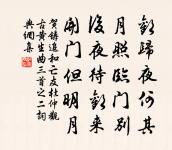 歡歸夜何其
月照臨門別
後夜待歡来
開門但明月
賀鑄追和亡友杜仲觀
古黃生曲三首之二詞
典網集